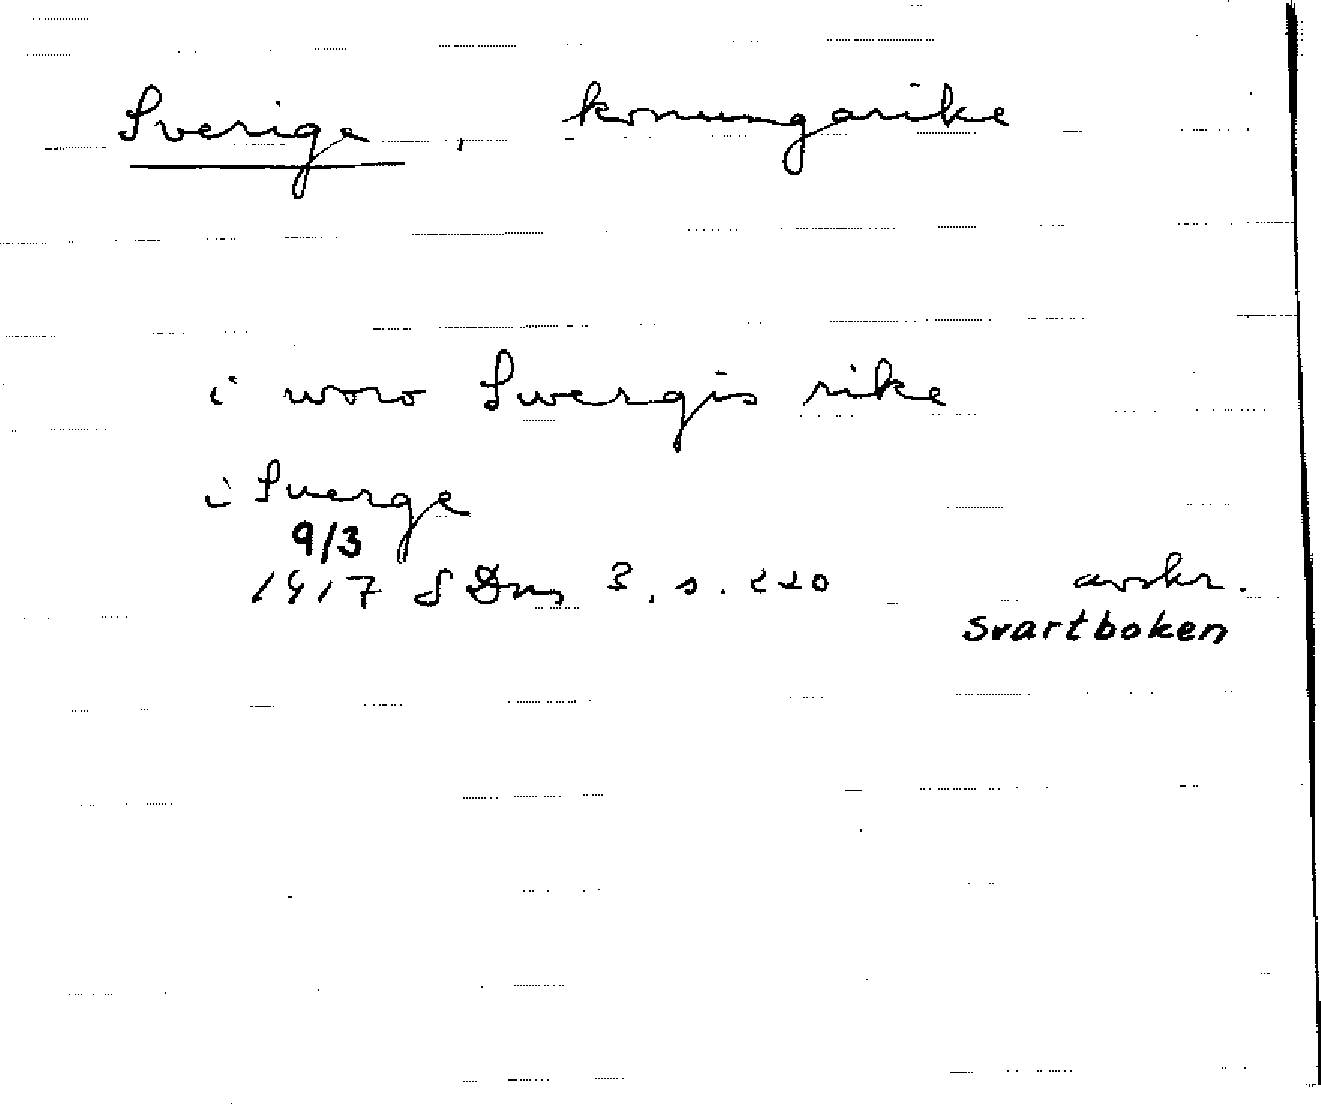 Sverige, konungarike
i woro Swergis rike
i Suerge
9/3
1417 SDns 3, s. 220 avskr.
svartboken